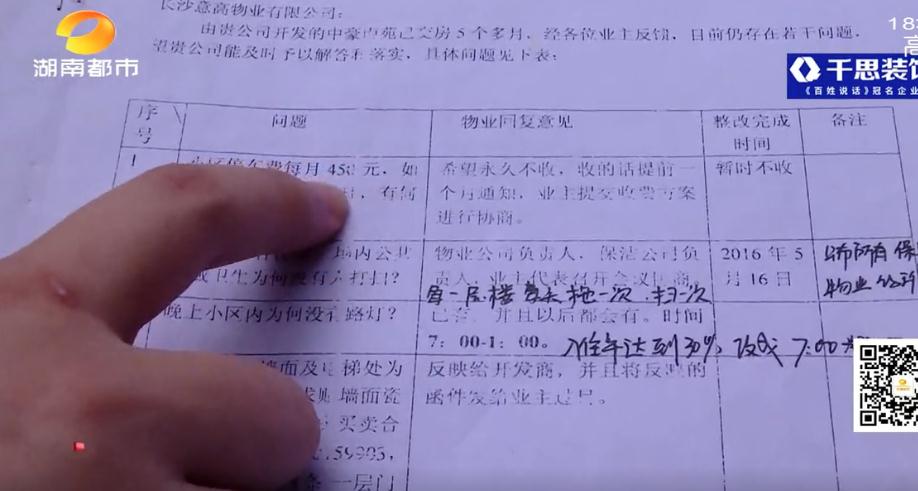 长沙意高物业有限公司：
由贵公司开发的中豪西苑已交房5个多月，经各位业主反馈，目前仍存在若干问题，
望贵公司能及时予以解答和落实，具体问题见下表：
湖南都市
18
高
千思装饰
《百姓说话》冠名企业
序号
问题
物业回复意见
整改完成时间
备注
1
小区停车费每月450元，如
，有何
希望永久不收，收的话提前一
个月通知，业主提交收费方案
进行协商。
暂时不收
内公共
卫生为何没有人打扫？
物业公司负责人，保洁公司负
责人，业主代表召开会议协商
每一层楼 每天拖一次 扫一次
2016年5
月16日
所有保
物业
晚上小区内为何没有路灯？
已答，并且以后都会有。时间
7：00-1：00。
入住率达到30%，改成7:00
墙面及电梯处为
墙面瓷
买卖合
59903，
一层门
反映给开发商，并且将反映的
函件发给业主过目。